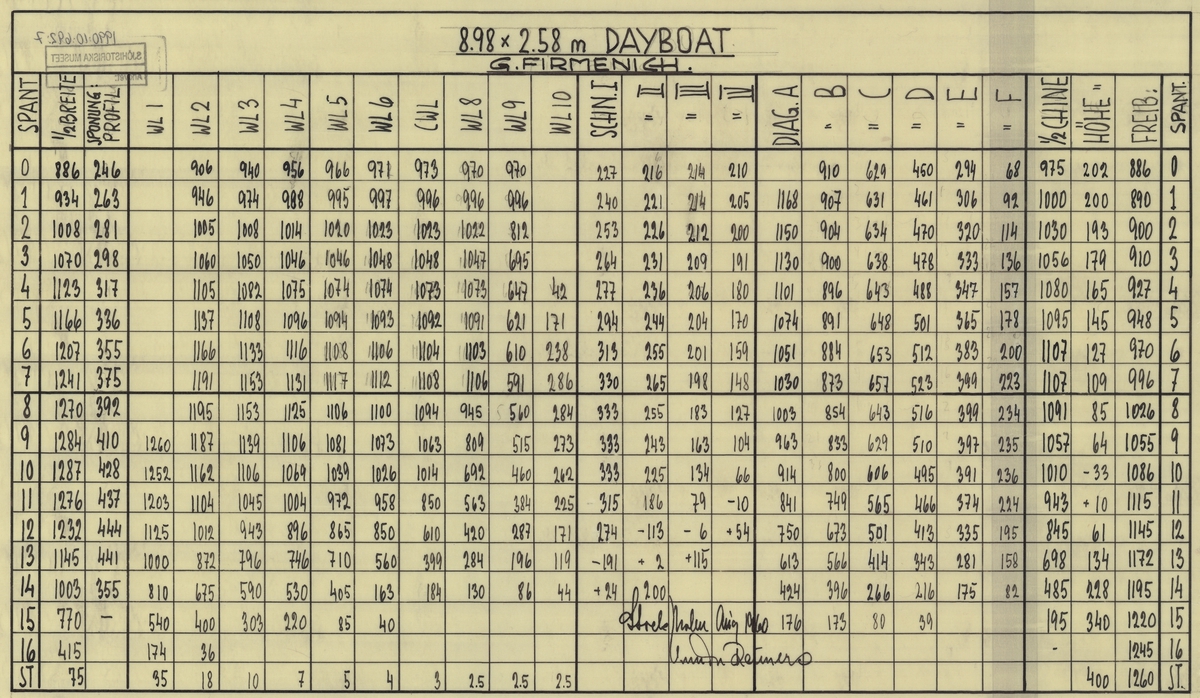 1990:10:692:7
SJÖHISTORISKA MUSEET
8.98 × 2.58 m DAYBOAT
G. FIRMENICH.
SPANT 1/2 BREITE SPONUNG: PROFIL WL 1 WL 2 WL 3 WL 4 WL 5 WL 6 CWL WL 8 WL 9 WL 10 SCHN. I " II " III " IV DIAG. A " B " C " D " E " F 1/2 CHINE HÖHE " FREIB: SPANT.
0 886 246 906 940 956 966 971 973 970 970 227 216 214 210 910 629 450 294 68 975 202 886 0
1 934 263 946 974 988 995 997 996 996 996 240 221 214 205 1168 907 631 461 306 92 1000 200 890 1
2 1008 281 1005 1008 1014 1020 1023 1023 1022 812 253 226 212 200 1150 904 634 470 320 114 1030 193 900 2
3 1070 298 1060 1050 1046 1046 1048 1048 1047 695 264 231 209 191 1130 900 638 478 333 136 1056 179 910 3
4 1123 317 1105 1082 1075 1074 1074 1073 1073 647 42 277 236 206 180 1101 896 643 488 347 157 1080 165 927 4
5 1166 336 1137 1108 1096 1094 1093 1092 1091 621 171 294 244 204 170 1074 891 648 501 365 178 1095 145 948 5
6 1207 355 1166 1133 1116 1108 1106 1104 1103 610 238 313 255 201 159 1051 884 653 512 383 200 1107 127 970 6
7 1241 375 1191 1153 1131 1117 1112 1108 1106 591 286 330 265 198 148 1030 873 657 523 399 223 1107 109 996 7
8 1270 392 1195 1153 1125 1106 1100 1094 945 560 284 333 255 183 127 1003 854 643 516 399 234 1091 85 1026 8
9 1284 410 1260 1187 1139 1106 1081 1073 1063 809 515 273 333 243 163 104 963 833 629 510 397 235 1057 64 1055 9
10 1287 428 1252 1162 1106 1069 1039 1026 1014 692 460 262 333 225 134 66 914 800 606 495 391 236 1010 -33 1086 10
11 1276 437 1203 1104 1045 1004 972 958 850 563 384 225 -315 186 79 -10 841 749 565 466 374 224 943 +10 1115 11
12 1232 444 1125 1012 943 896 865 850 610 420 287 171 274 -113 -6 +54 750 673 501 413 335 195 845 61 1145 12
13 1145 441 1000 872 796 746 710 560 399 284 196 119 -191 +2 +115 613 566 414 343 281 158 698 134 1172 13
14 1003 355 810 675 590 530 405 163 184 130 86 44 +24 200 424 396 266 216 175 82 485 228 1195 14
15 770 - 540 400 303 220 85 40 Aug 1960 176 173 80 39 195 340 1220 15
16 415 174 36 - 1245 16
ST 75 35 18 10 7 5 4 3 2.5 2.5 2.5 400 1260 ST.